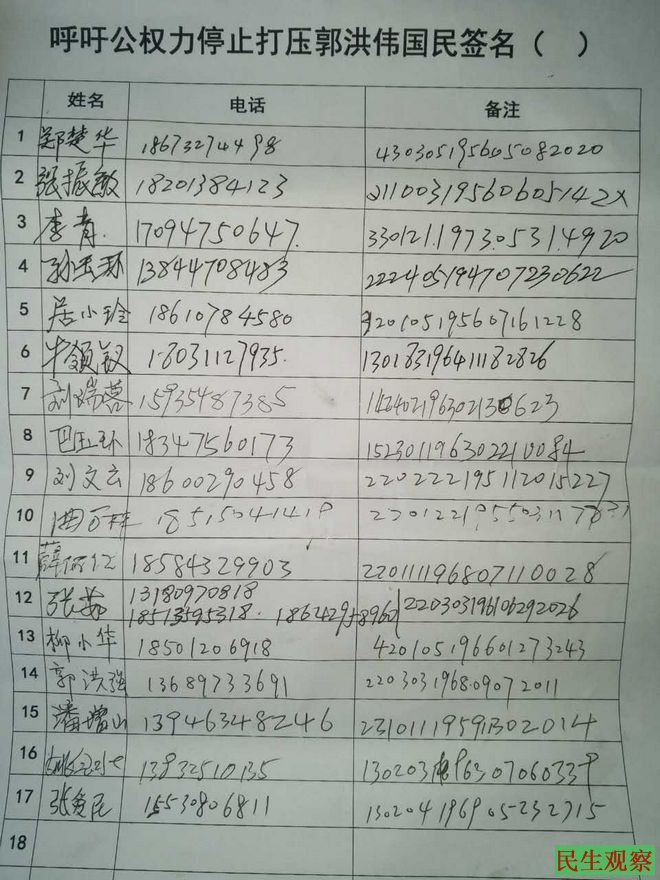 呼吁公权力停止打压郭洪伟国民签名（ ）
姓名 电话 备注
1 郑楚华 18673274498 430305195605082020
2 张振敏 18201384123 21100319560605142X
3 李青. 17094750647. 330121.1973.0531.4920
4 孙玉环 13844708483 222405194707230622
5 居小玲 18610784580 320105195607161228
6 牛领钗 18031127935. 130183196411182826
7 刘瑞蓉 15935487385 142402196302130623
8 巴玉环 18347560173 152301196302210084
9 刘文云 18600290458 220222195112015227
10
11 薛 18584329903 220111196807110028
12 张茹 13180970818 220303196106292026
18513595318.
13 柳小华 18501206918 420105196601273243
14 郭洪强 13689733691 220303196809072011
15 潘增山 13946348246 23101119591302014
16 13832510135
17 张爱民 15530806811 130204196905232715
18
民生观察